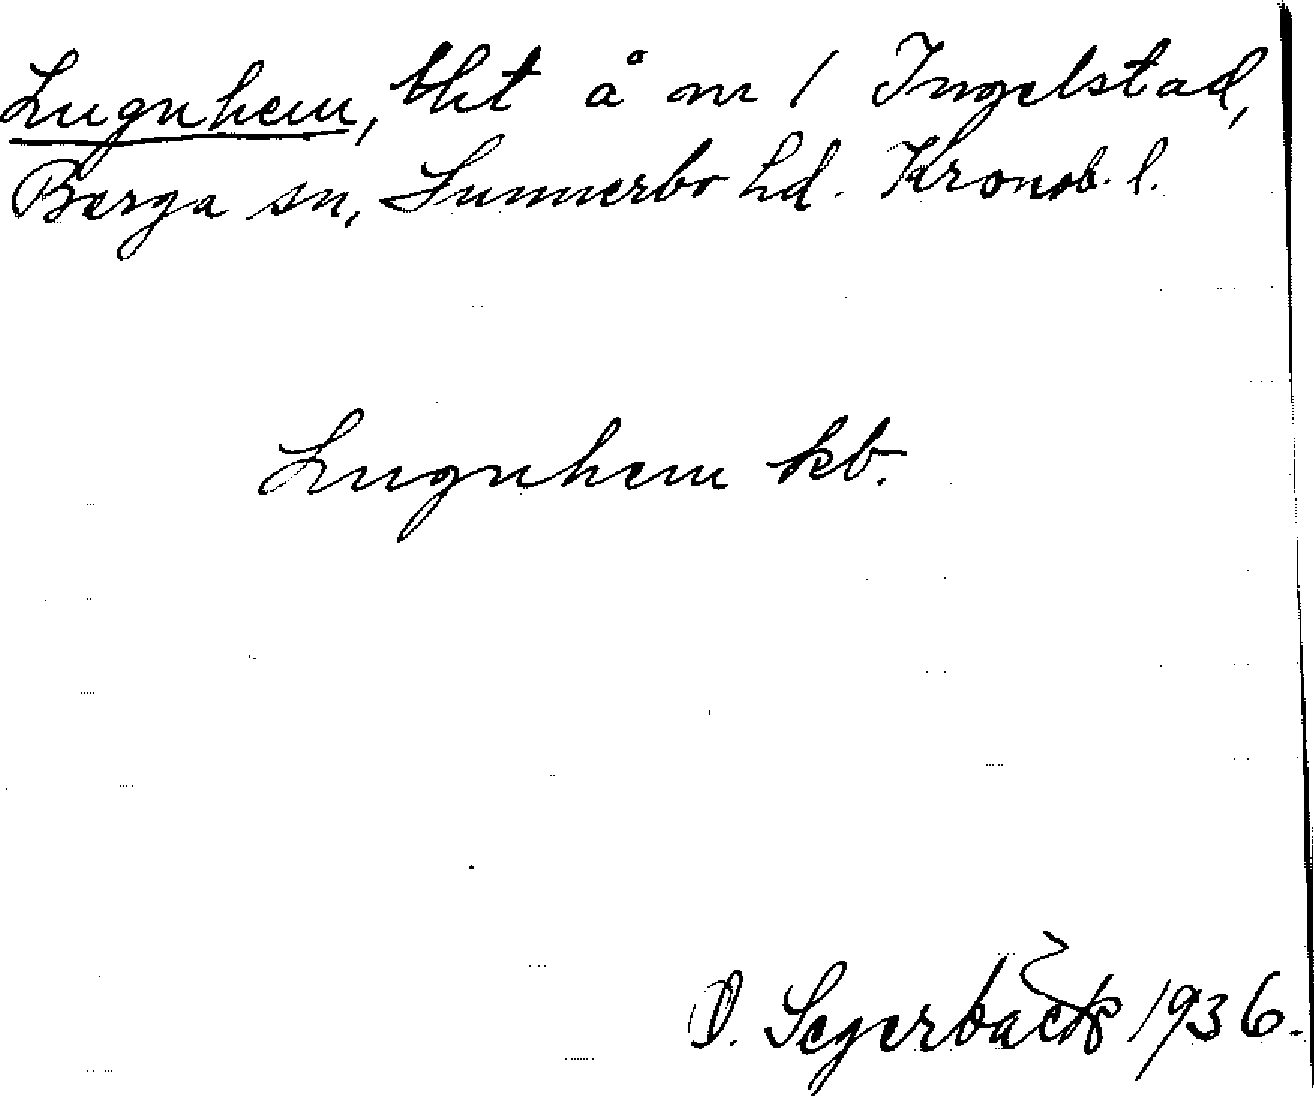 Lugnhem, bht å nr 1 Ingelstad,
Berga sn, Sunnerbo hd. Kronob. l.
Lugnhem kb.
O. Segerbäck 1936.